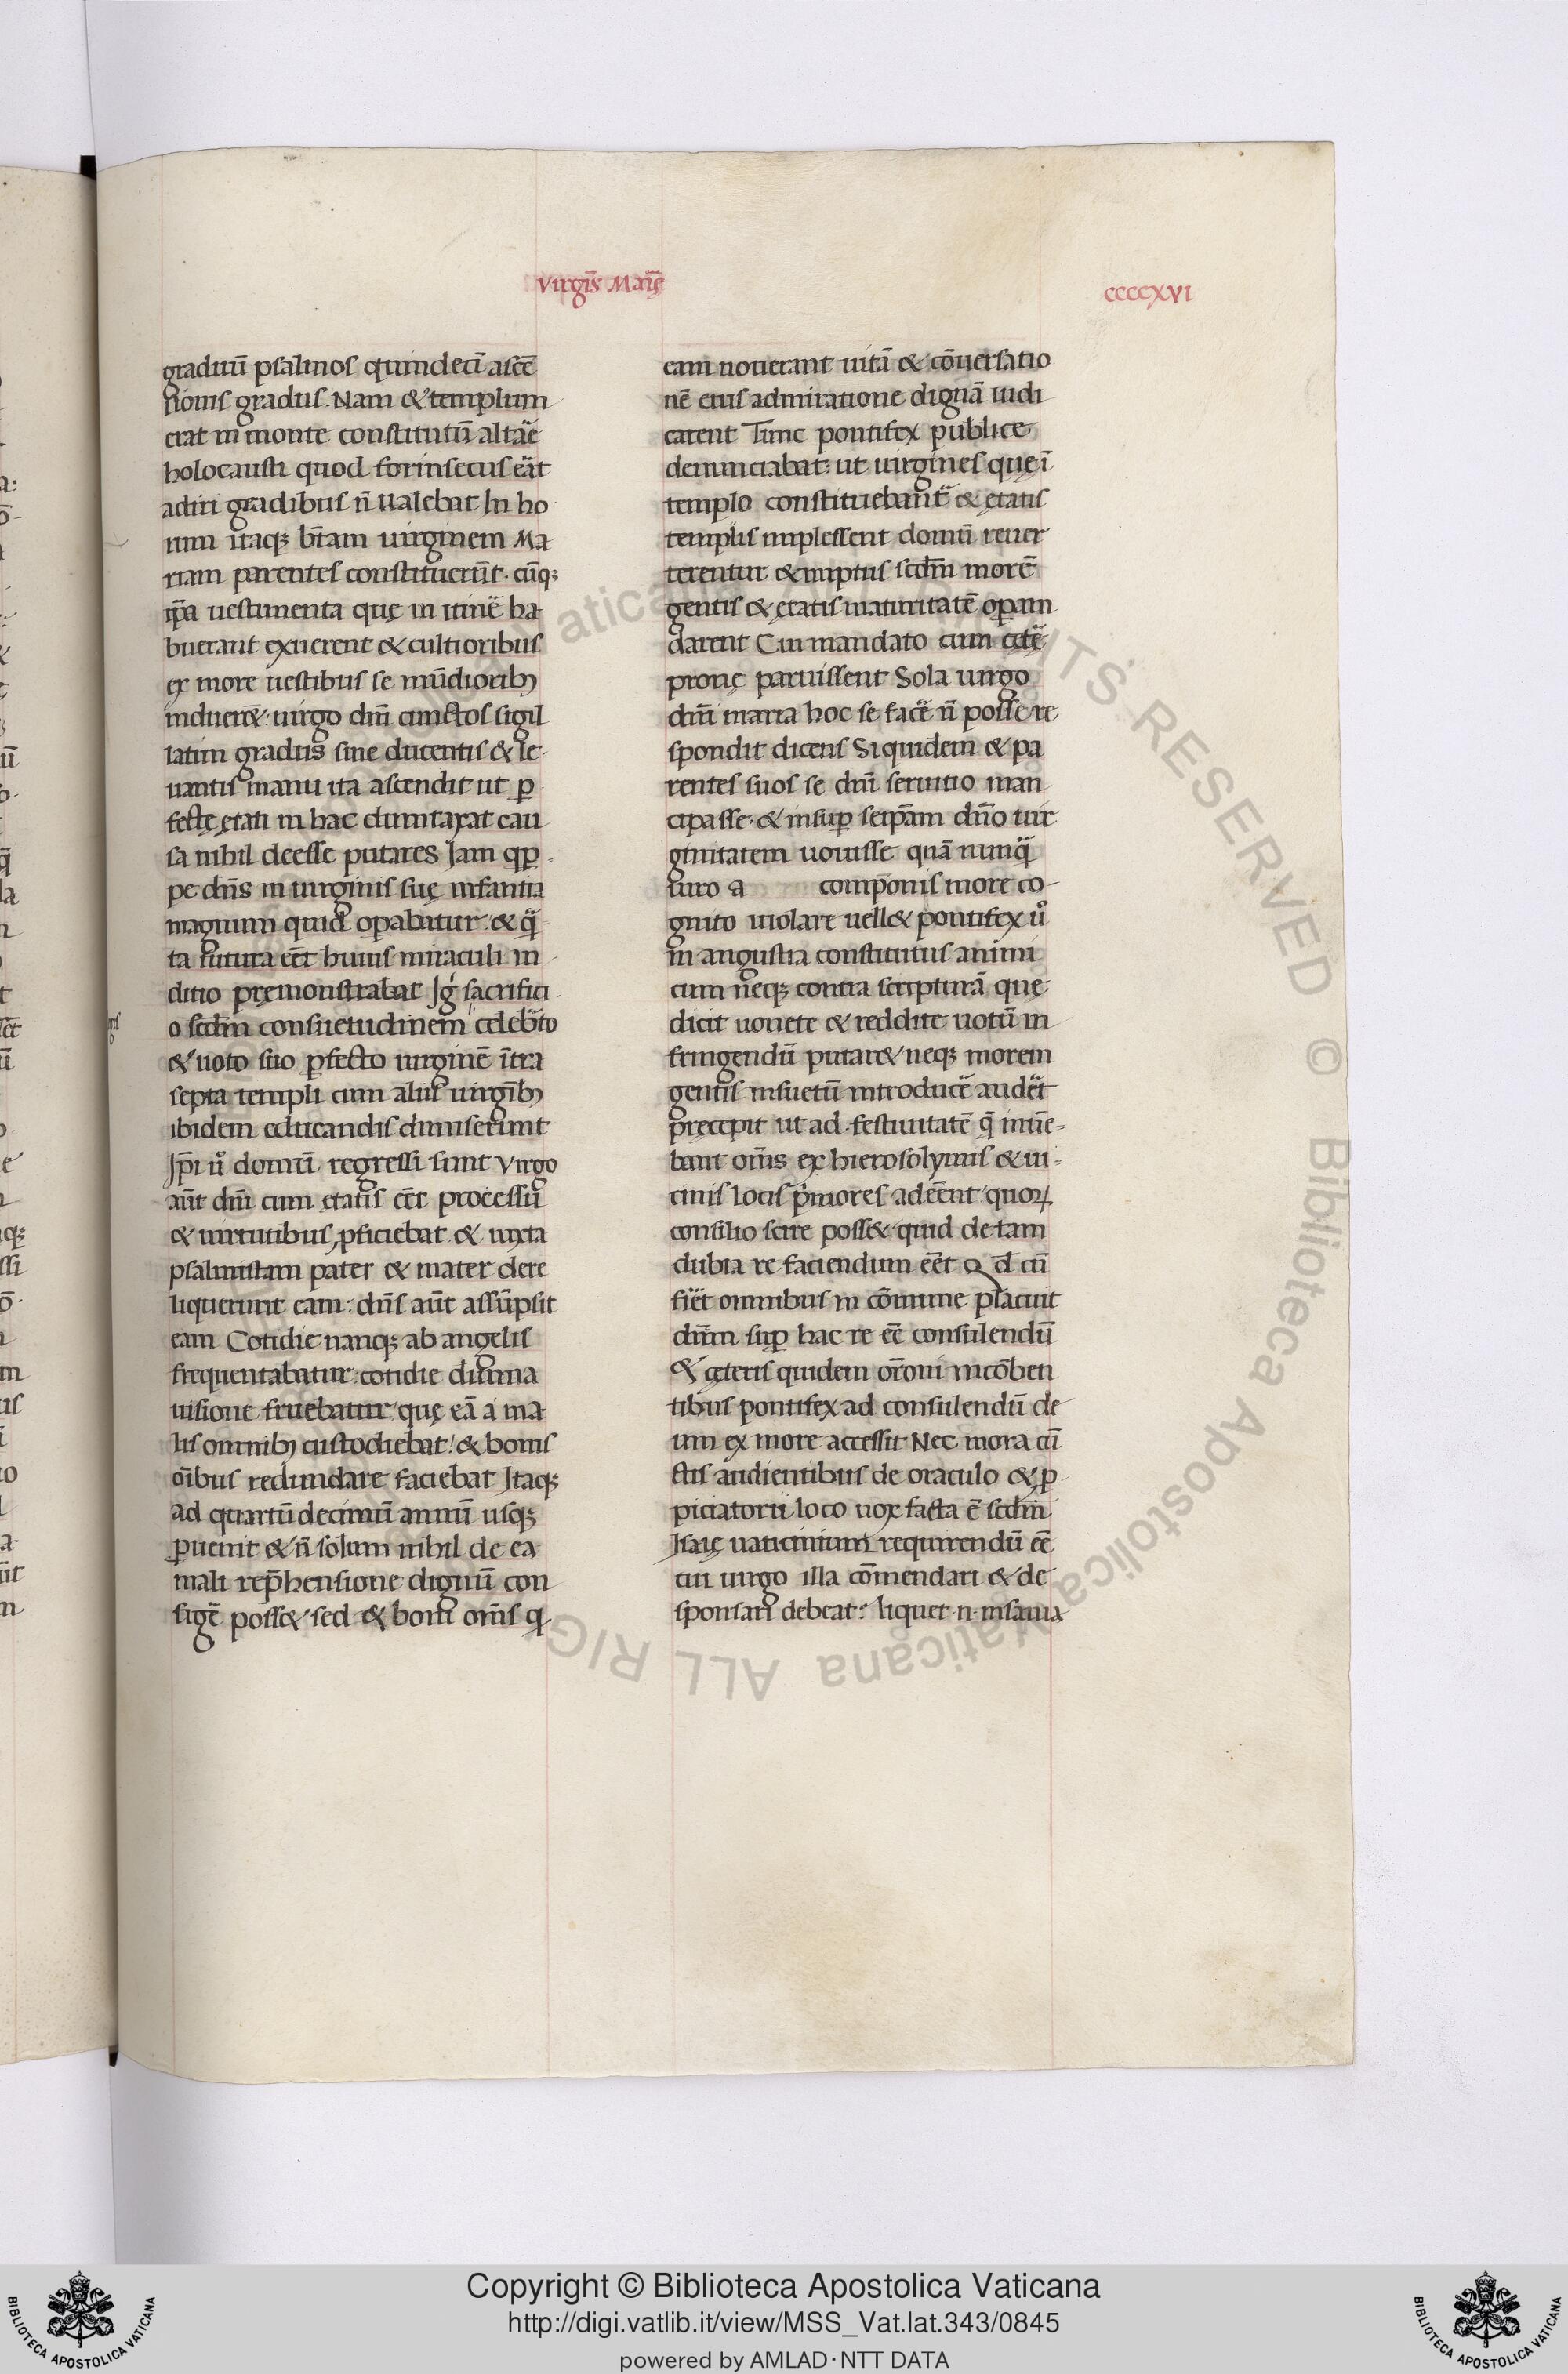 Virgīs Marīę
CCCCXVI
graduū psalmos quindecī ascē
sionis gradus. Nam & templum
erat in monte constitutū altāe
holocausti quod forinsecus eāt
adiri gradibus n̄ ualebat In ho
rum itaq; bt̄am uirginem Ma
riam parentes constituerūt. cūq;
ip̄a uestimenta quę in itinē ha
buerant exuerent & cultioribus
ex more uestibus se mūdiorib;
induer&: uirgo dn̄i cunctos sigil
latim gradus sine ducentis & le
uantis manu ita ascendit ut ꝑ
fectę ętati in hac dumtaxat cau
sa nihil deesse putares Jam qꝑ
pe dn̄s in uirginis suę infantia
magnum quid oꝑabatur & q̄
ta futura eēt huius miraculi in
ditio pręmonstrabat Jgͥ sacrifici
o scdm̄ consuetudinem celebāto
& uoto suo ꝑfecto uirginē ītra
septa templi cum alijs uirgīb;
ibidem educandis dimiserunt
Jp̄i uͦ domū regressi sunt Virgo
aūt dn̄i cum ętatis eēt processū
& uirtutibus ꝓficiebat & iuxta
psalmistam pater & mater dere
liquerunt eam: dn̄s aūt assūpsit
eam Cotidie nanq; ab angelis
frequentabatur: cotidie diuina
uisione fruebatur quę eā a ma
lis omnib; custodiebat! & bonis
oībus redundare faciebat Itaq;
ad quartūdecimū annū usq;
ꝑuenit & n̄ solum nihil de ea
mali rep̄hensione dignū con
figē poss& sed & boni om̄s q
eam nouerant uitā & cōuersatio
nē eius admiratione dignā iudi
carent Tunc pontifex publice
denunciabat: ut uirgines quę ī
templo constituebant̄ & ętatis
templis implessent domū reuer
terentur & nuptiis scdm̄ morē
gentis & ętatis maturitatē oꝑam
darent Cui mandato cum cetē
pronę paruissent Sola uirgo
dn̄i maria hoc se facē n̄ posse re
spondit dicens Siquidem & pa
rentes suos se dn̄i seruitio man
cipasse. & insuꝑ seip̄am dn̄o uir
ginitatem uouisse quā nunq̄
uiro a componis more co
gnito violare uell& pontifex uͦ
in angustia constitutus animi
cum neq; contra scripturā quę
dicit uouete & reddite uotū in
fringendū putar& neq; morem
gentis insuetū introducē audēt
pręcepit ut ad festiuitatē q̄ imīe
bant om̄s ex hierosolymis & ui
cinis locis pͥmores adeēnt quoꝝ
consilio scire poss& quid de tam
dubia re faciendum eēt Qd̄ cū
fiēt omnibus in cōmune placuit
dn̄m suꝑ hac re eē consulendū
& çteris quidem or̄oni incōben
tibus pontifex ad consulendū de
um ex more accessit Nec mora cū
ctis audientibus de oraculo & ꝓ
piciatorii loco uox facta ē scdm̄
Jsaię uaticinium requirendū eē
cui uirgo illa cōmendari & de
sponsari debeat: liquet n. insaiua
Copyright © Biblioteca Apostolica Vaticana
http://digi.vatlib.it/view/MSS_Vat.lat.343/0845
powered by AMLAD·NTT DATA